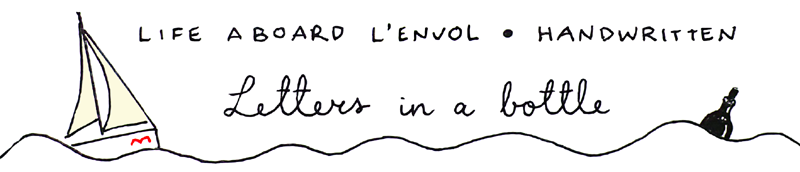 LIFE ABOARD L'ENVOL • HANDWRITTEN
Letters in a bottle